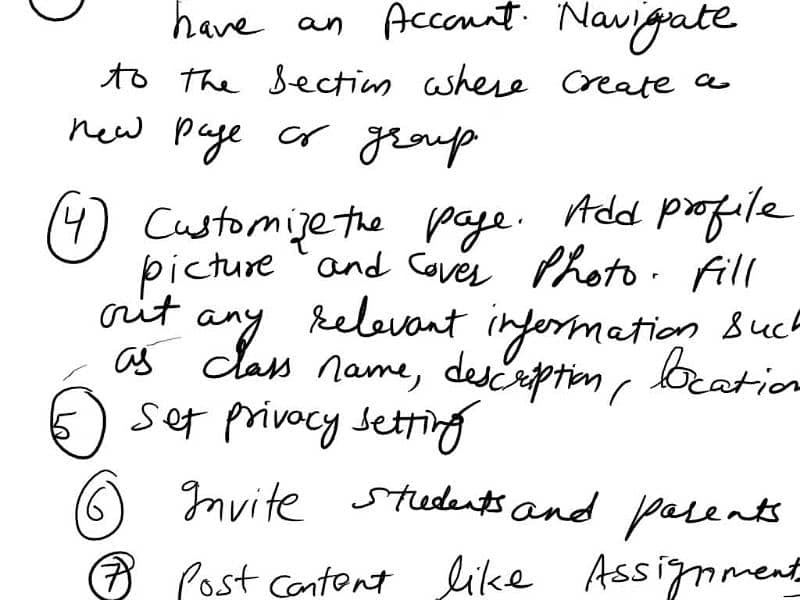 have an Account. Navigate
to the Section where Create a
new page or group.
④ Customize the page. Add profile
picture and Cover Photo. fill
out any relevant information such
as class name, description, location
⑤ Set privacy setting
⑥ Invite students and parents
⑦ Post content like Assignments